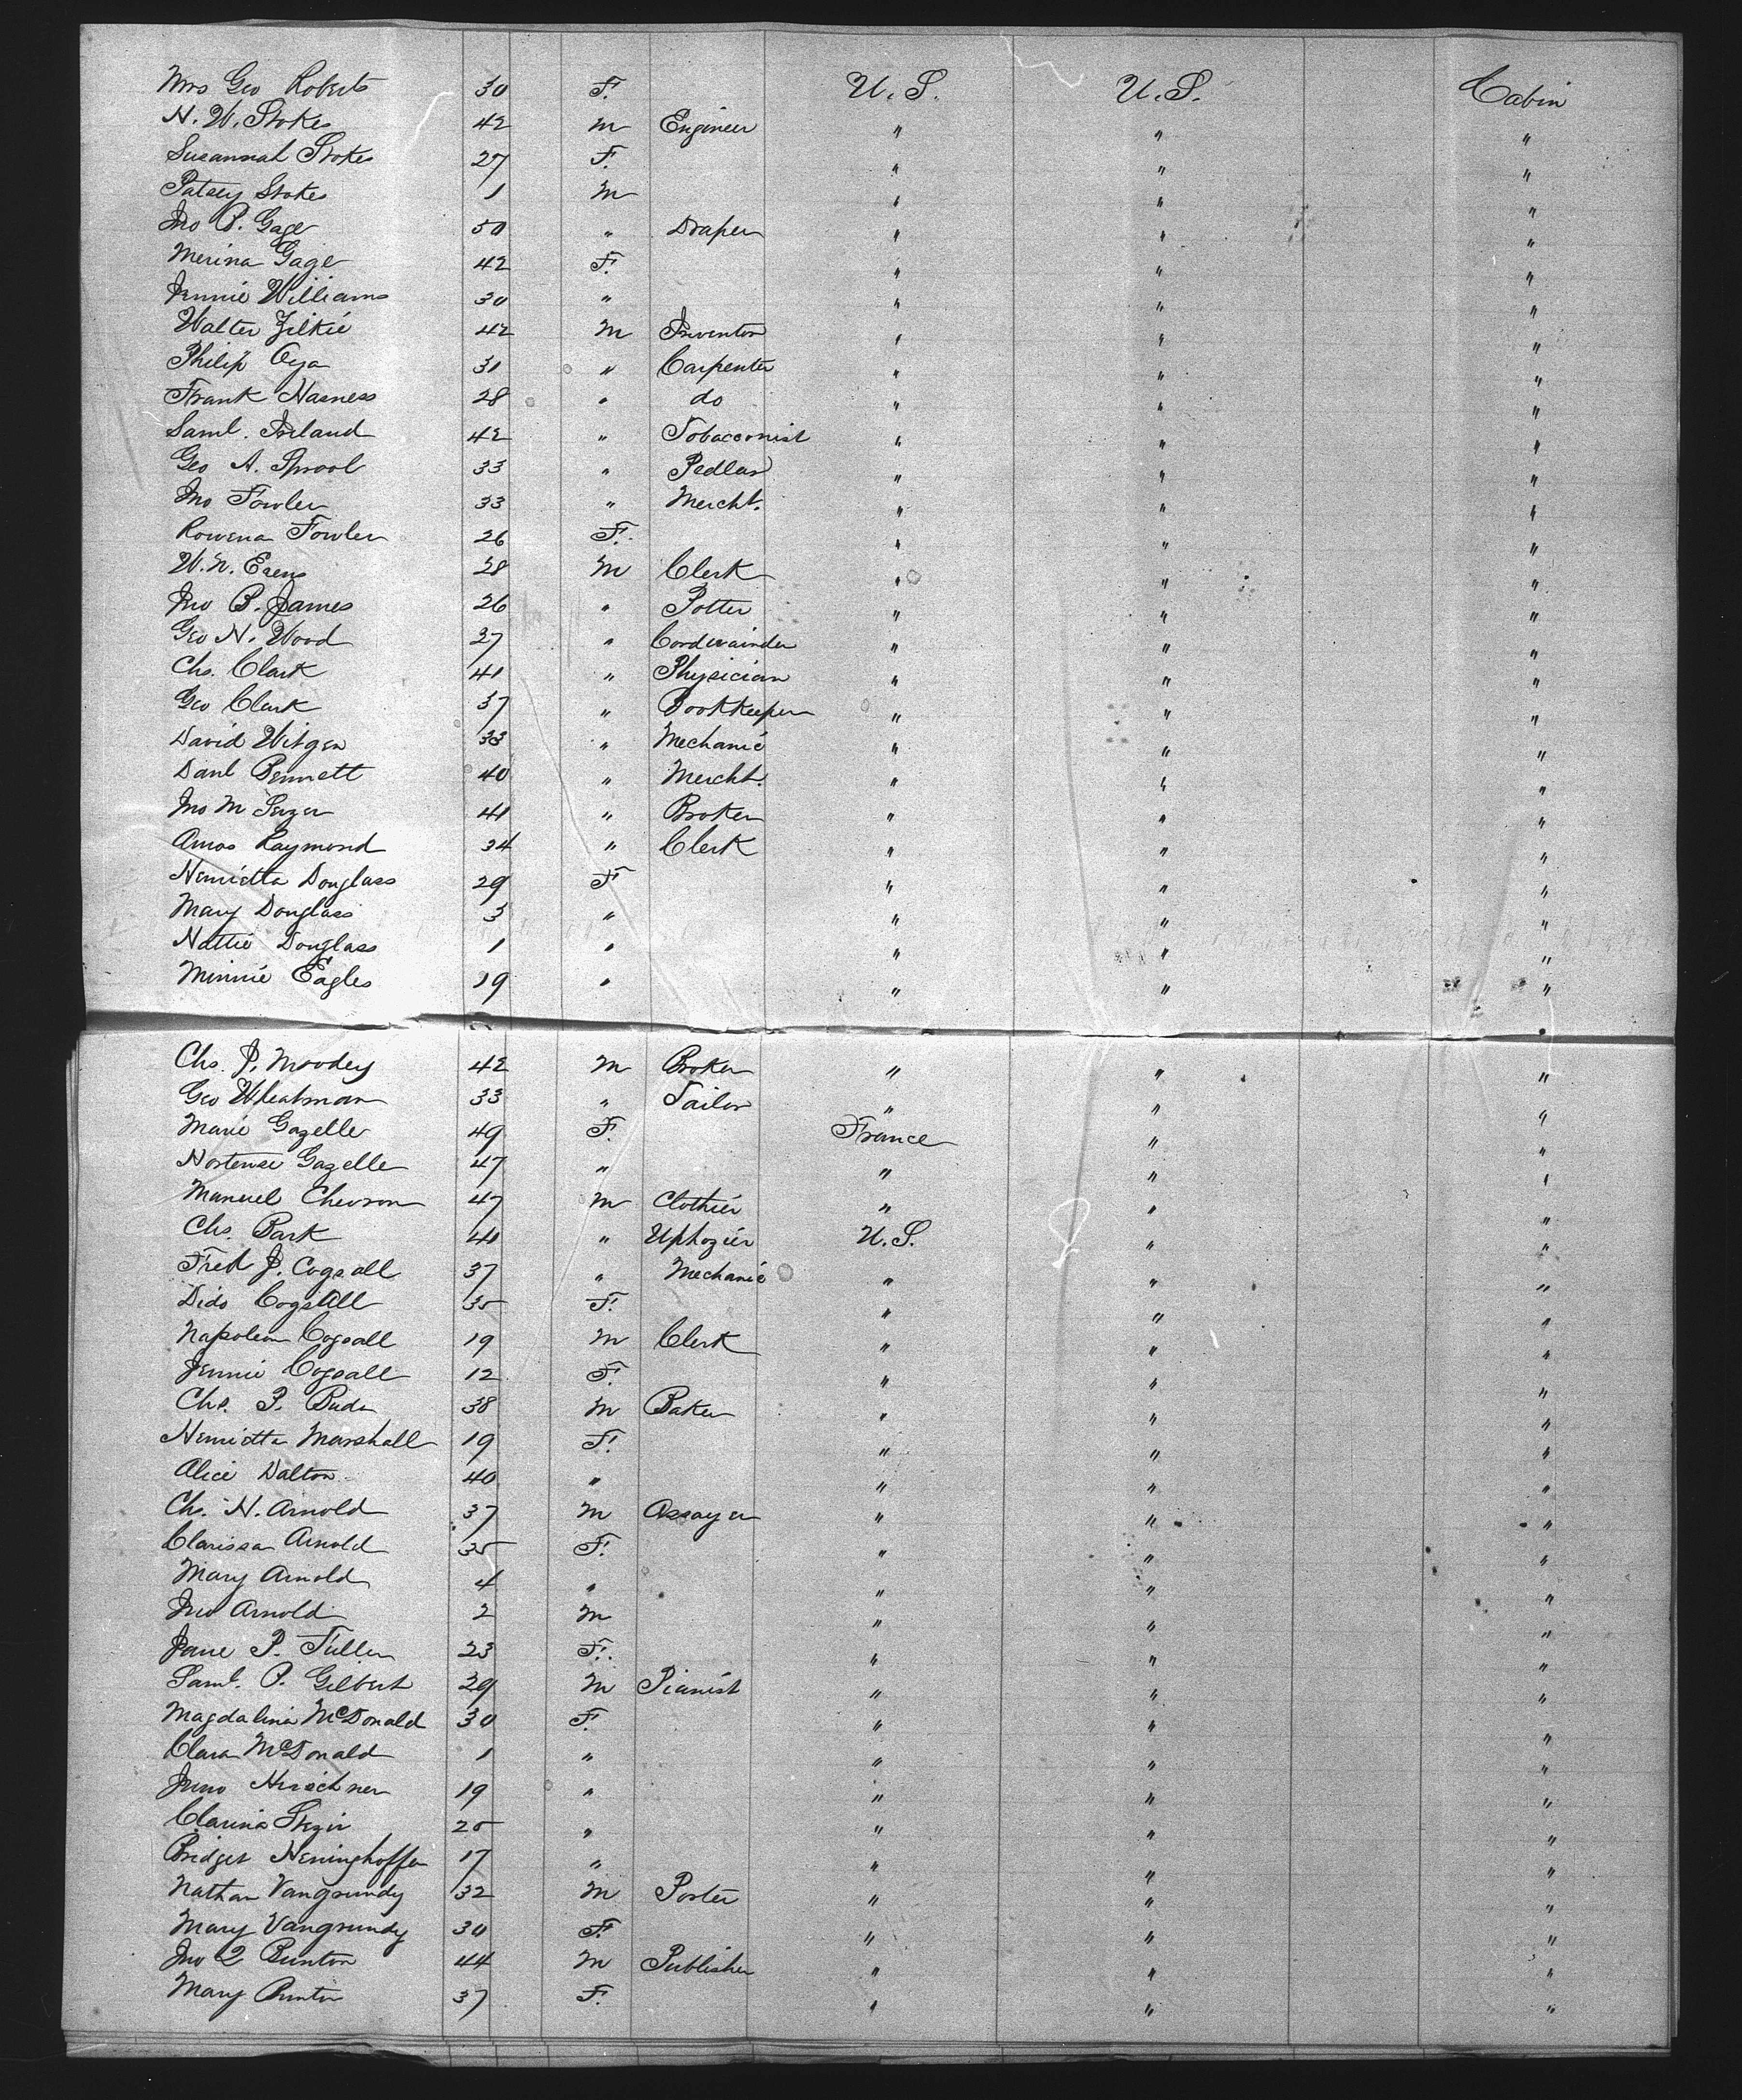 Mrs Geo Roberts 30 F. U.S. U.S. Cabin
H. W. Stokes 42 M Engineer " " "
Susannah Stokes 27 F. " " "
Patsey Stokes 1 M " " "
Jno P. Gage 50 " Draper " " "
Merina Gage 42 F. " " "
Jennie Williams 30 " " " "
Walter Zilkie 42 M Inventor " " "
Philip Oga 31 " Carpenter " " "
Frank Harness 28 " do " " "
Saml. Ireland 42 " Tobacconist " " "
Geo A. Sprool 33 " Pedlar " " "
Jno Fowler 33 " Mercht. " " "
Rowena Fowler 26 F. " " "
W. N. Evens 28 M Clerk " " "
Jno B. James 26 " Potter " " "
Geo H. Wood 27 " Cordwainder " " "
Chs. Clark 41 " Physician " " "
Geo Clark 37 " Bookkeeper " " "
David Witgen 33 " Mechanic " " "
Danl Bennett 40 " Mercht. " " "
Jno M 41 " Broker " " "
Amos Raymond 34 " Clerk " " "
Henrietta Douglass 29 F " " "
Mary Douglass 3 " " " "
Hattie Douglass 1 " " " "
Minnie Eagles 19 " " " "
Chs. J. Moodey 42 M Broker " " "
Geo Wheatman 33 " Tailor " " "
Marie Gazelle 49 F. France " "
Hortense Gazelle 47 " " " "
Manuel Chevron 47 M Clothier " " "
Chs. Park 41 " Uphozier U.S. " "
Fred J. Cogsall 37 " Mechanic " " "
Dido Cogsall 35 F. " " "
Napoleon Cogsall 19 M Clerk " " "
Jennie Cogsall 12 F. " " "
Chs. P. Buda 38 M Baker " " "
Henrietta Marshall 19 F. " " "
Alice Dalton 40 " " " "
Ch. H. Arnold 37 M Assayer " " "
Clarissa Arnold 35 F. " " "
Mary Arnold 4 " " " "
Jno Arnold 2 M " " "
Jane P. Fuller 23 F. " " "
Saml. P. Gilbert 29 M Pianist " " "
Magdalina McDonald 30 F. " " "
Clara McDonald 1 " " " "
Juno Hirschner 19 " " " "
Clarina 25 " " " "
Bridget Heninghoffen 17 " " " "
Nathan Vangrundy 32 M Porter " " "
Mary Vangrundy 30 F. " " "
Jno Q Bunton 44 M Publisher " " "
Mary Bunton 37 F. " " "